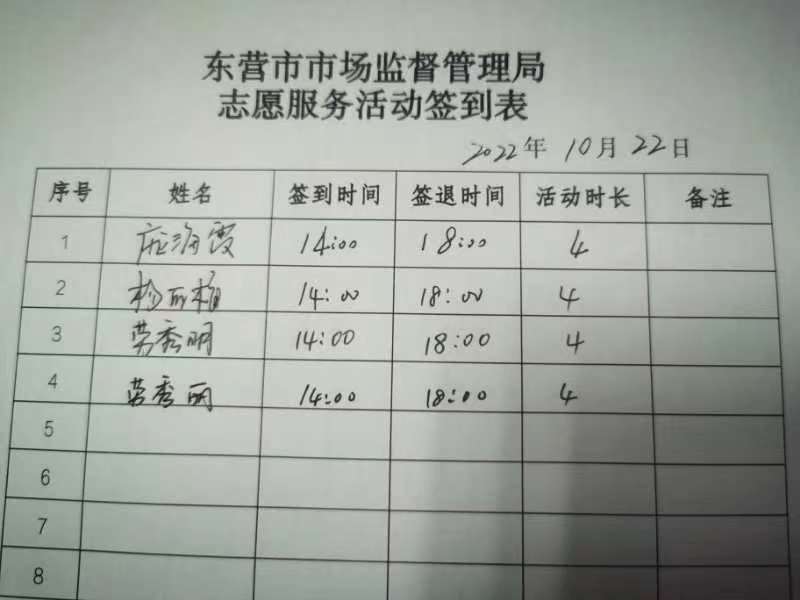 东营市市场监督管理局
志愿服务活动签到表
2022年 10月 22日
序号 姓名 签到时间 签退时间 活动时长 备注
1 庞海霞 14:00 18:00 4
2 14:00 18:00 4
3 秀明 14:00 18:00 4
4 秀丽 14:00 18:00 4
5
6
7
8